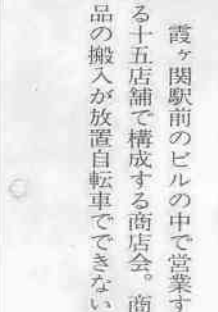 霞ヶ関駅前のビルの中で営業す
る十五店舗で構成する商店会。商
品の搬入が放置自転車でできない